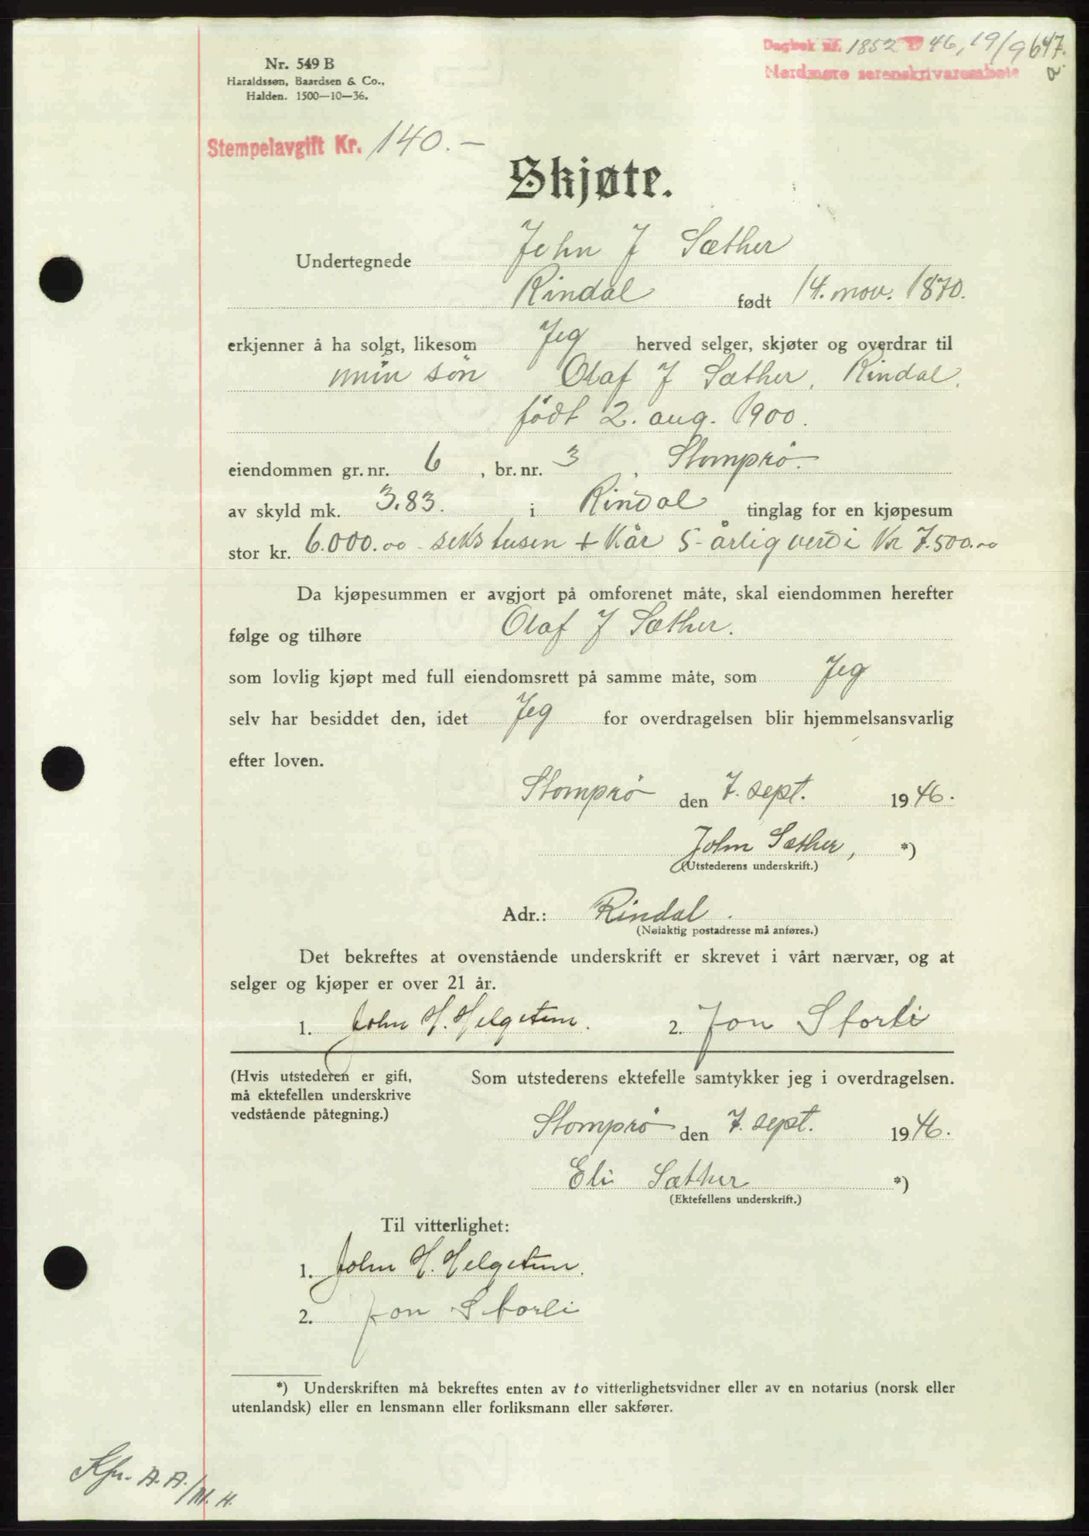 Dagbok nr. 1852 1946, 19/9 647.
a
Nordmøre sorenskrivarembete
Nr. 549 B
Haraldssøn, Baardsen & Co.,
Halden. 1500—10—36.
Stempelavgift Kr. 140.—
Skjøte.
Undertegnede John J Sæther
Rindal født 14. nov. 1870.
erkjenner å ha solgt, likesom Jeg herved selger, skjøter og overdrar til
min søn Olaf J Sæther, Rindal,
født 2. aug. 1900.
eiendommen gr. nr. 6, br. nr. 3, Stomprø.
av skyld mk. 3.83. i Rindal tinglag for en kjøpesum
stor kr. 6.000.00 - seks tusen + Kår 5-årlig verdi Kr 7.500.00
Da kjøpesummen er avgjort på omforenet måte, skal eiendommen herefter
følge og tilhøre Olaf J Sæther.
som lovlig kjøpt med full eiendomsrett på samme måte, som Jeg
selv har besiddet den, idet Jeg for overdragelsen blir hjemmelsansvarlig
efter loven.
Stomprø den 7. sept. 1946.
John Sæther, *)
(Utstederens underskrift.)
Adr.: Rindal.
(Nøiaktig postadresse må anføres.)
Det bekreftes at ovenstående underskrift er skrevet i vårt nærvær, og at
selger og kjøper er over 21 år.
1. John H. Helgetun. 2. Jon Storli
(Hvis utstederen er gift, Som utstederens ektefelle samtykker jeg i overdragelsen.
må ektefellen underskrive
vedstående påtegning.)
Stomprø den 7. sept. 1946.
Eli Sæther *)
(Ektefellens underskrift.)
Til vitterlighet:
1. John H. Helgetun.
2. Jon Storli
*) Underskriften må bekreftes enten av to vitterlighetsvidner eller av en notarius (norsk eller
utenlandsk) eller en lensmann eller forliksmann eller sakfører.
Kfr. A.A./M.H.